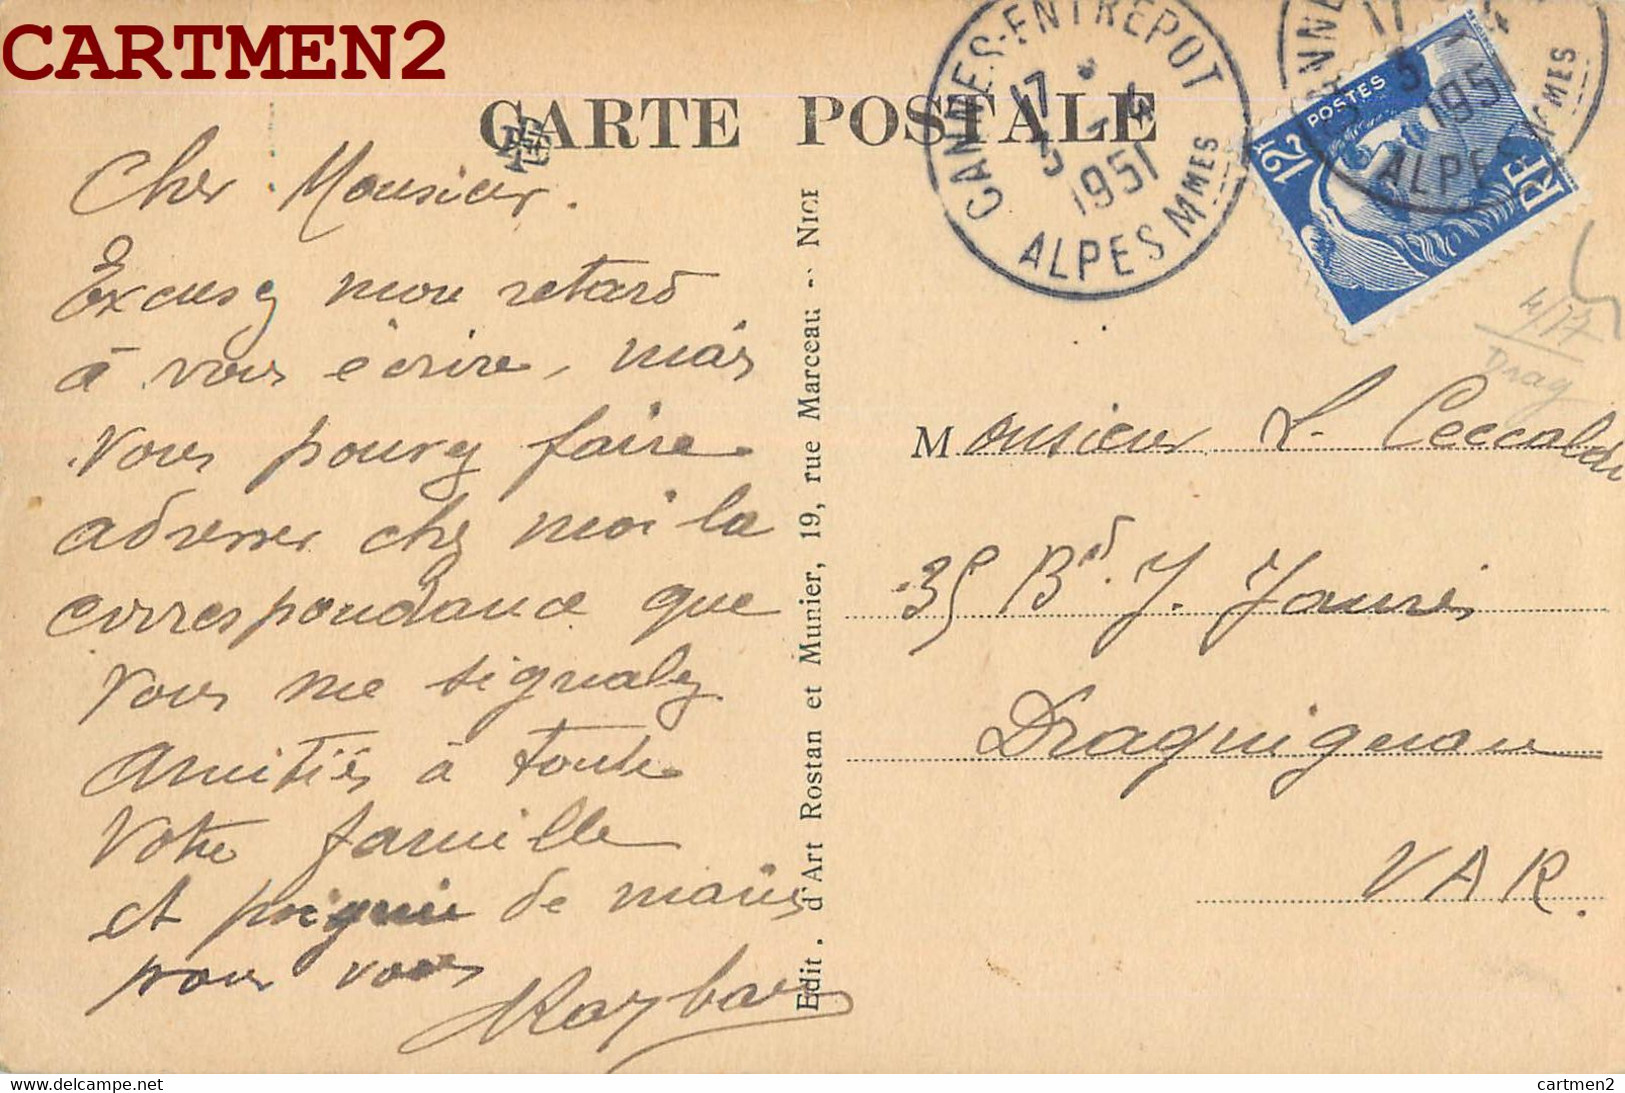 CARTMEN2
CARTE POSTALE
Cher Monsieur.
Excusez mon retard
à vous écrire, mais
vous pouvez faire
adresser chez moi la
correspondance que
vous me signalez
Amitiés à toute
votre famille
et poignée de mains
pour vous
Edit. d'Art Rostan et Munier, 19, rue Marceau - NICE
CANNES-ENTREPOT
17 4
5
1951
ALPES MMES
5
1951
ALPES MMES
12F POSTES
RF
4/17
Drag
Monsieur L. Ceccaldi
35 Bd. J. Jaurès
Draguignan
VAR.
delcampe.net
cartmen2